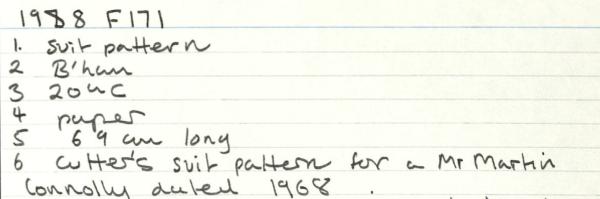 1988 F171
1. suit pattern
2 B'ham
3 20th C
4 paper
5 69 cm long
6 cutter's suit pattern for a Mr Martin
Connolly dated 1968 .